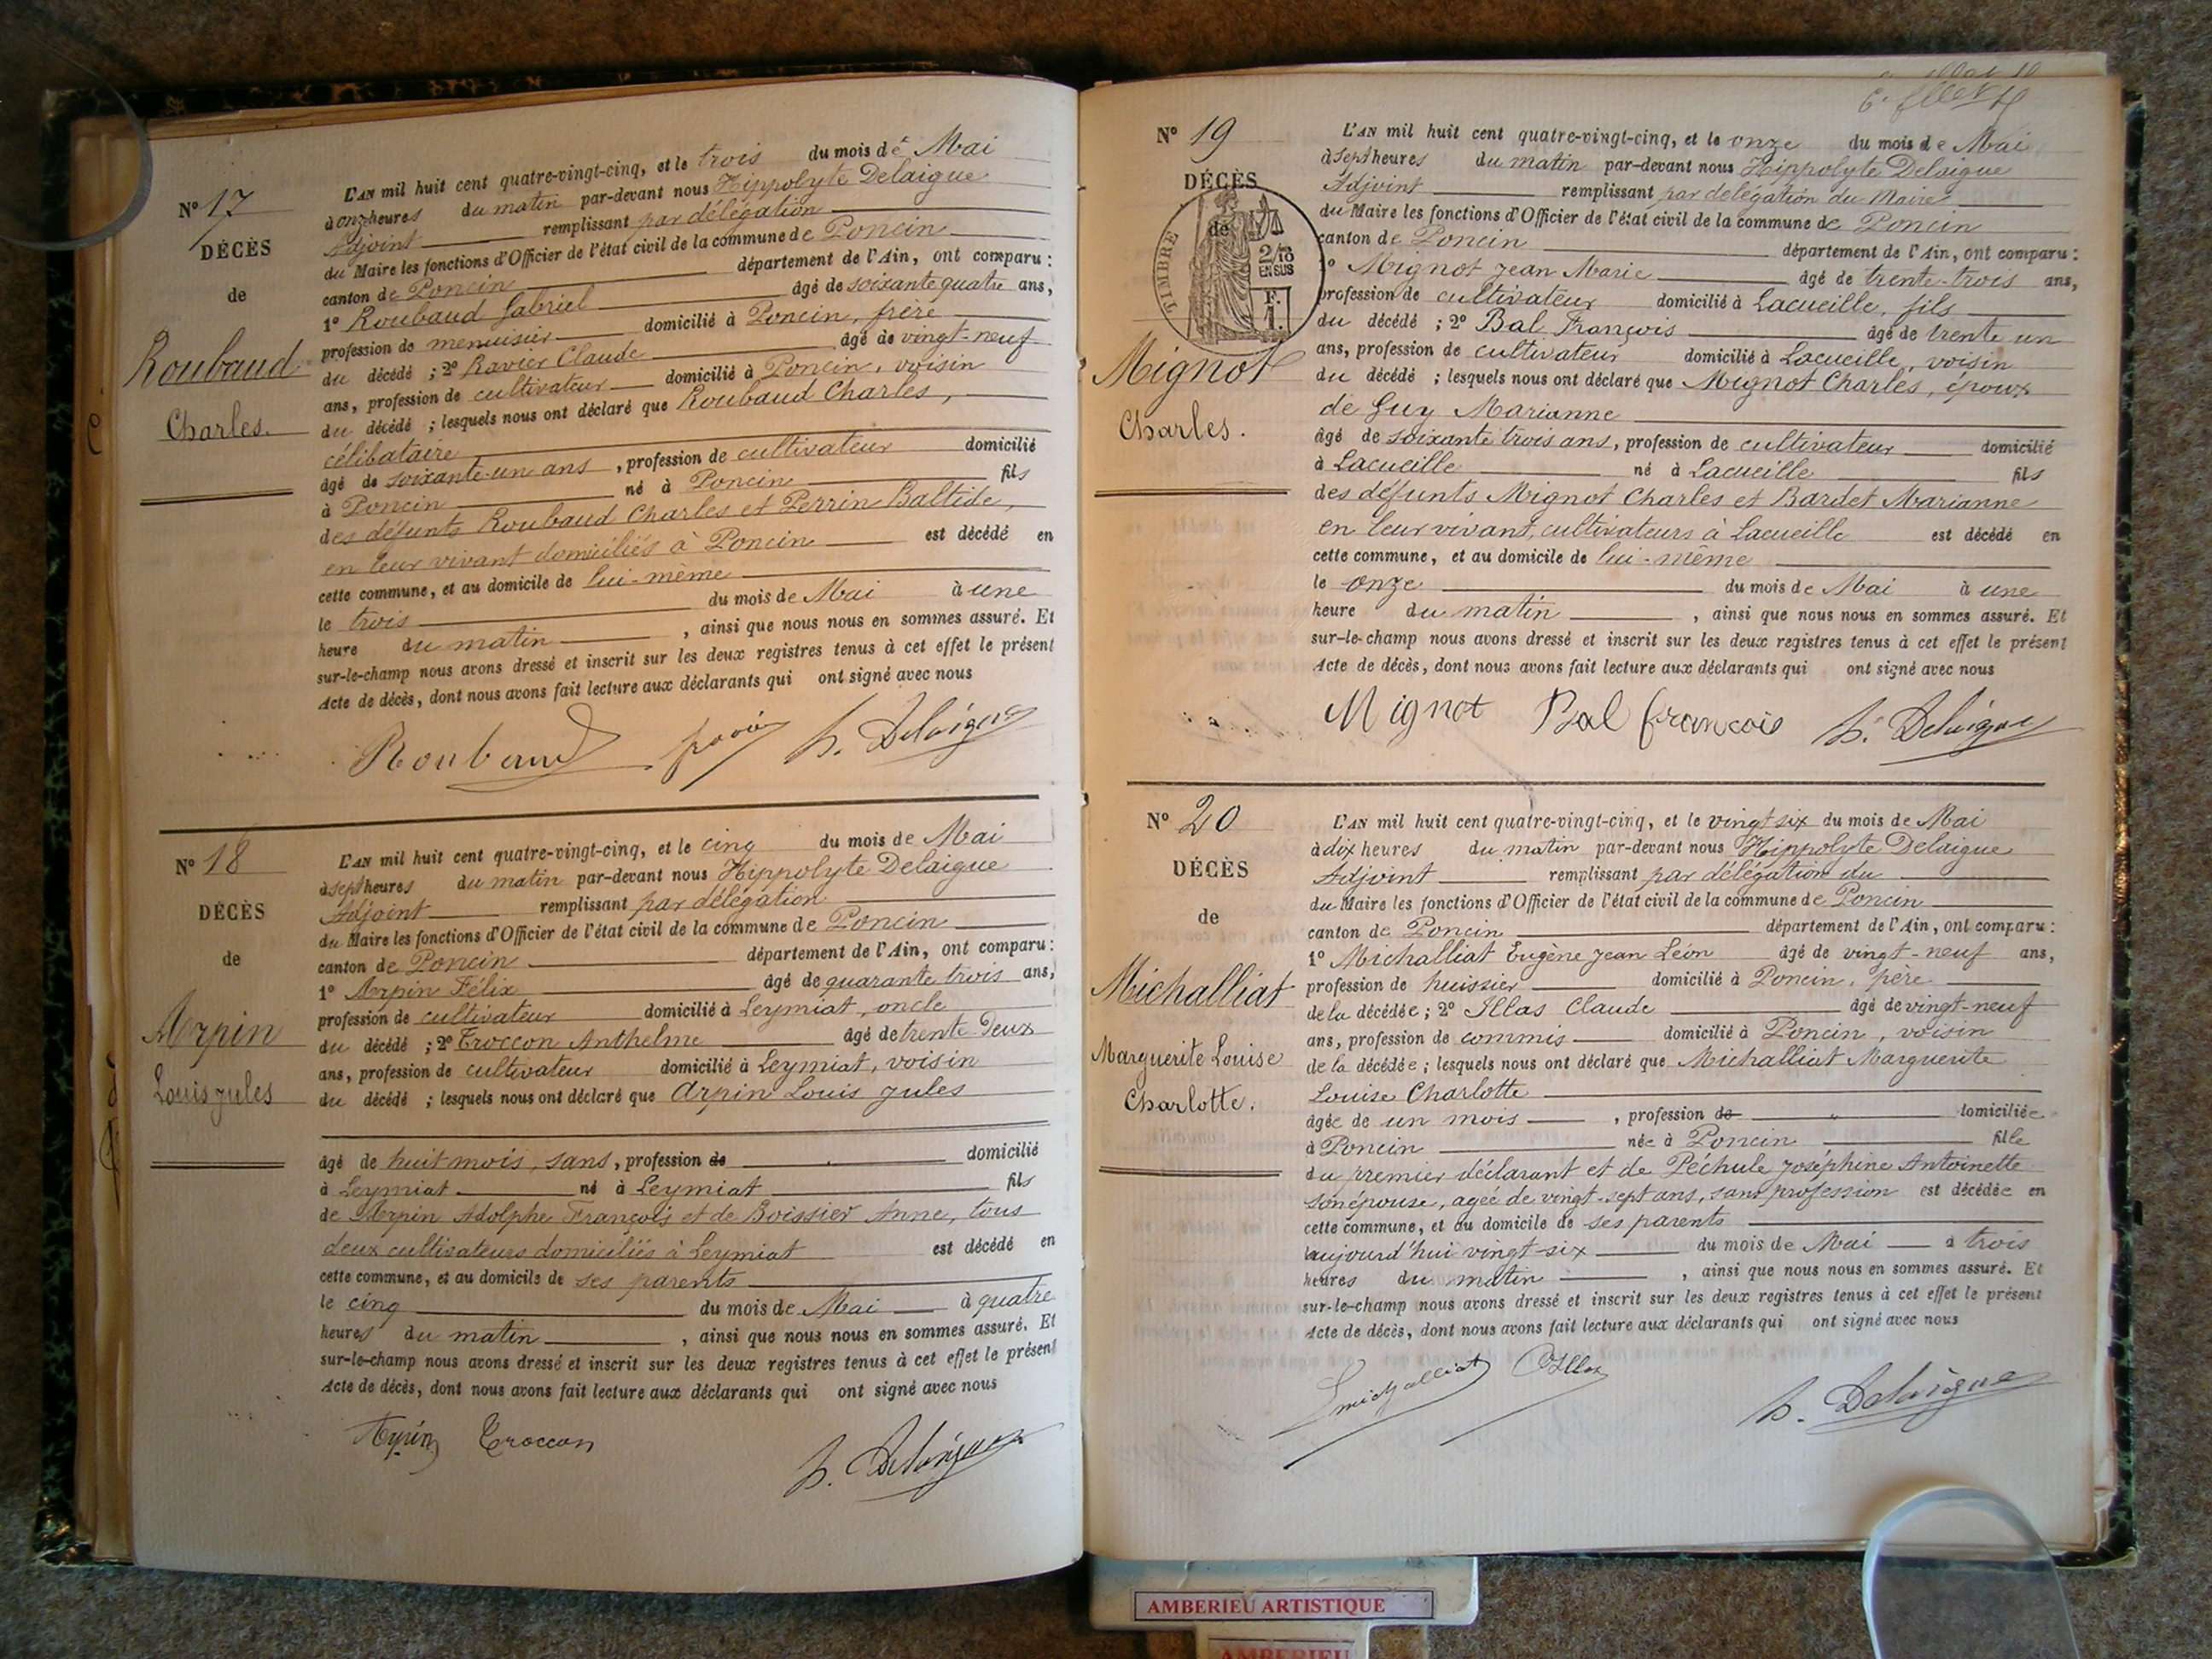 Nº 17
DÉCÈS
de
Roubaud
Charles.
L'AN mil huit cent quatre-vingt-cinq, et le trois du mois de Mai
à onze heures du matin par-devant nous Hippolyte Delaigue
Adjoint remplissant par délégation
du Maire les fonctions d'Officier de l'état civil de la commune de Poncin
canton de Poncin département de l'Ain, ont comparu :
1º Roubaud Gabriel âgé de soixante quatre ans,
profession de menuisier domicilié à Poncin, frère
du décédé ; 2º Ravier Claude âgé de vingt-neuf
ans, profession de cultivateur domicilié à Poncin, voisin
du décédé ; lesquels nous ont déclaré que Roubaud Charles,
célibataire
âgé de soixante-un ans, profession de cultivateur domicilié
à Poncin né à Poncin fils
des défunts Roubaud Charles et Perrin Baltide,
en leur vivant domiciliés à Poncin est décédé en
cette commune, et au domicile de lui-même
le trois du mois de Mai à une
heure du matin , ainsi que nous nous en sommes assuré. Et
sur-le-champ nous avons dressé et inscrit sur les deux registres tenus à cet effet le présent
Acte de décès, dont nous avons fait lecture aux déclarants qui ont signé avec nous
Roubaud h. Delaigue
Nº 18
DÉCÈS
de
Arpin
Louis Jules
L'AN mil huit cent quatre-vingt-cinq, et le cinq du mois de Mai
à sept heures du matin par-devant nous Hippolyte Delaigue
Adjoint remplissant par délégation
du Maire les fonctions d'Officier de l'état civil de la commune de Poncin
canton de Poncin département de l'Ain, ont comparu :
1º Arpin Félix âgé de quarante trois ans,
profession de cultivateur domicilié à Leymiat, oncle
du décédé ; 2º Troccon Anthelme âgé de trente deux
ans, profession de cultivateur domicilié à Leymiat, voisin
du décédé ; lesquels nous ont déclaré que Arpin Louis Jules
âgé de huit mois, sans, profession de domicilié
à Leymiat né à Leymiat fils
de Arpin Adolphe François et de Boissier Anne, tous
deux cultivateurs domiciliés à Leymiat est décédé en
cette commune, et au domicile de ses parents
le cinq du mois de Mai à quatre
heures du matin , ainsi que nous nous en sommes assuré. Et
sur-le-champ nous avons dressé et inscrit sur les deux registres tenus à cet effet le présent
Acte de décès, dont nous avons fait lecture aux déclarants qui ont signé avec nous
Arpin Troccon
h. Delaigue
Nº 19
DÉCÈS
de
TIMBRE
2/10
EN SUS
F.
1.
Mignot
Charles.
L'AN mil huit cent quatre-vingt-cinq, et le onze du mois de Mai
à sept heures du matin par-devant nous Hippolyte Delaigue
Adjoint remplissant par délégation du Maire
du Maire les fonctions d'Officier de l'état civil de la commune de Poncin
canton de Poncin département de l'Ain, ont comparu :
1º Mignot Jean Marie âgé de trente-trois ans,
profession de cultivateur domicilié à Lacueille, fils
du décédé ; 2º Bal François âgé de trente un
ans, profession de cultivateur domicilié à Lacueille, voisin
du décédé ; lesquels nous ont déclaré que Mignot Charles, époux
de Guy Marianne
âgé de soixante trois ans, profession de cultivateur domicilié
à Lacueille né à Lacueille fils
des défunts Mignot Charles et Bardet Marianne
en leur vivant, cultivateurs à Lacueille est décédé en
cette commune, et au domicile de lui-même
le onze du mois de Mai à une
heure du matin , ainsi que nous nous en sommes assuré. Et
sur-le-champ nous avons dressé et inscrit sur les deux registres tenus à cet effet le présent
Acte de décès, dont nous avons fait lecture aux déclarants qui ont signé avec nous
Mignot Bal françois h. Delaigue
Nº 20
DÉCÈS
de
Michalliat
Marguerite Louise
Charlotte.
L'AN mil huit cent quatre-vingt-cinq, et le vingt six du mois de Mai
à dix heures du matin par-devant nous Hippolyte Delaigue
Adjoint remplissant par délégation du
du Maire les fonctions d'Officier de l'état civil de la commune de Poncin
canton de Poncin département de l'Ain, ont comparu :
1º Michalliat Eugène Jean Léon âgé de vingt-neuf ans,
profession de huissier domicilié à Poncin, père
de la décédée ; 2º Illas Claude âgé de vingt-neuf
ans, profession de commis domicilié à Poncin, voisin
de la décédée ; lesquels nous ont déclaré que Michalliat Marguerite
Louise Charlotte
âgée de un mois , profession de domiciliée
à Poncin née à Poncin fille
du premier déclarant et de Péchule Joséphine Antoinette
son épouse, agée de vingt-sept ans, sans profession est décédée en
cette commune, et au domicile de ses parents
aujourd'hui vingt-six du mois de Mai à trois
heures du matin , ainsi que nous nous en sommes assuré. Et
sur-le-champ nous avons dressé et inscrit sur les deux registres tenus à cet effet le présent
Acte de décès, dont nous avons fait lecture aux déclarants qui ont signé avec nous
Michalliat Illas
h. Delaigue
AMBERIEU ARTISTIQUE
AMBERIEU